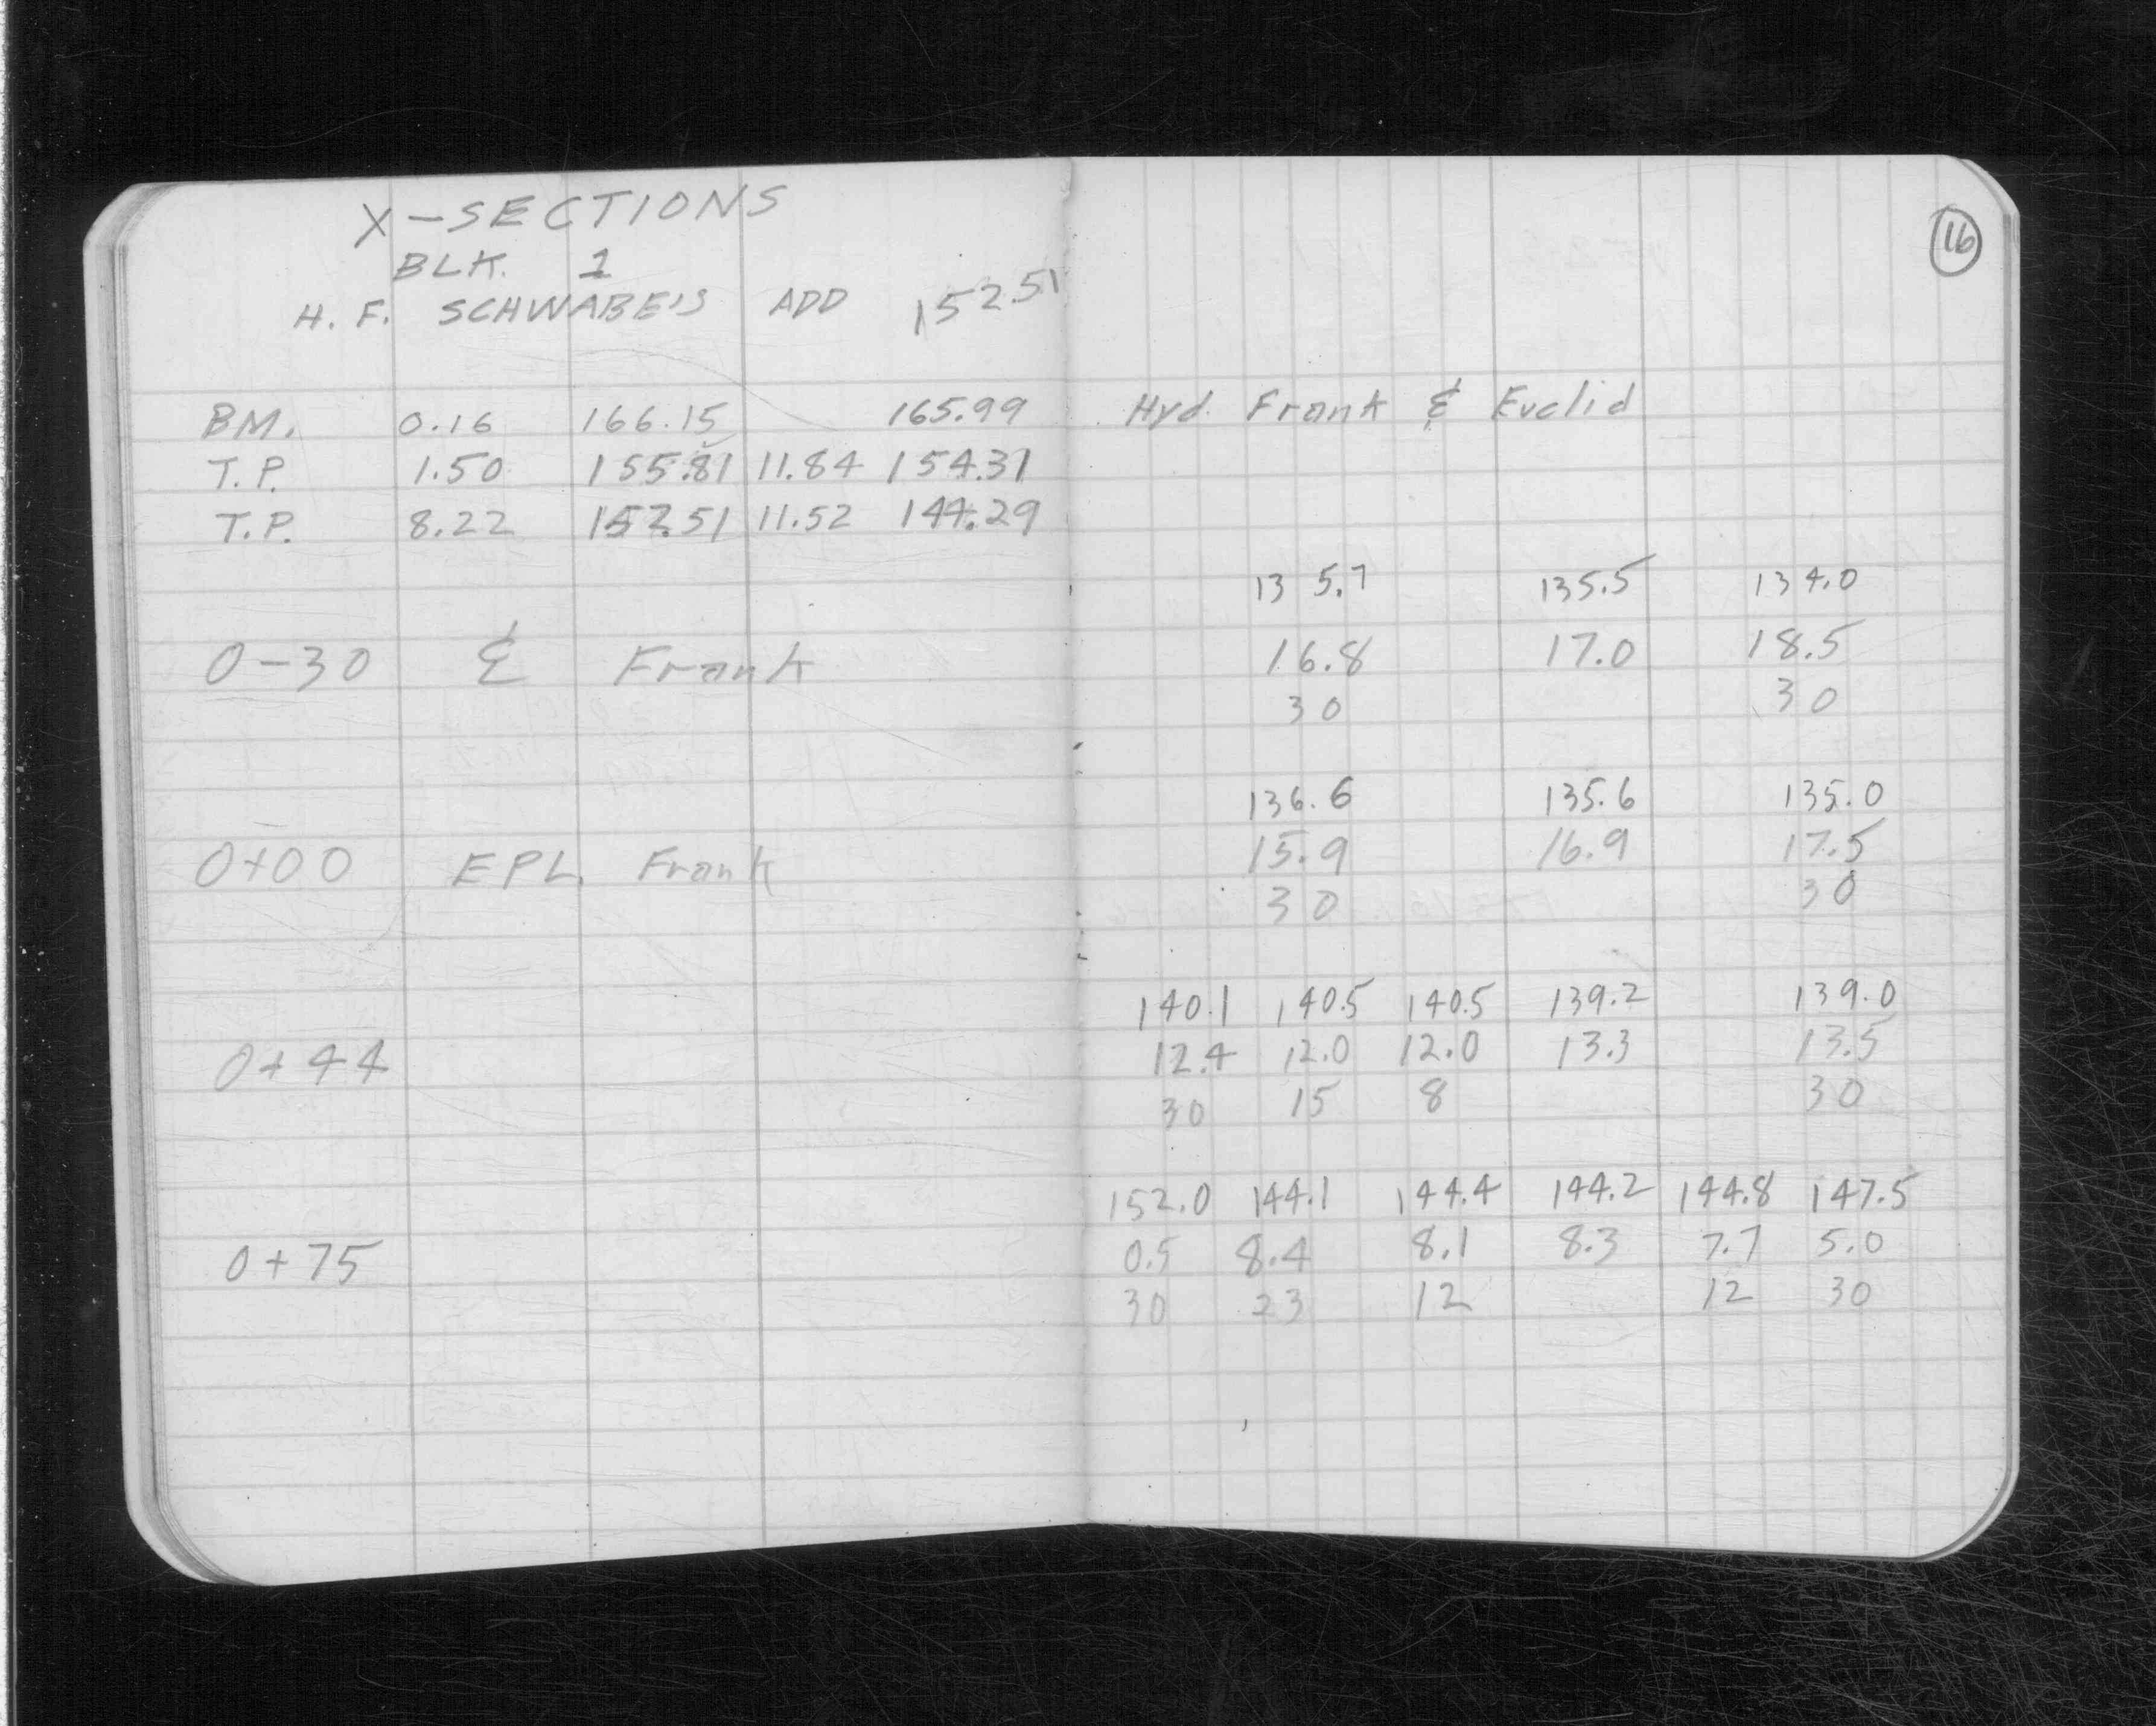 X-SECTIONS
BLK. 1
H. F. SCHWABE'S ADD 152.51
BM. 0.16 166.15 165.99
T.P. 1.50 155.81 11.84 154.31
T.P. 8.22 152.51 11.52 144.29
0-30 ₵ Frank
0+00 EPL. Frank
0+44
0+75
16
Hyd. Frank & Euclid
135.7 135.5 134.0
16.8 17.0 18.5
30 30
136.6 135.6 135.0
15.9 16.9 17.5
30 30
140.1 140.5 140.5 139.2 139.0
12.4 12.0 12.0 13.3 13.5
30 15 8 30
152.0 144.1 144.4 144.2 144.8 147.5
0.5 8.4 8.1 8.3 7.7 5.0
30 23 12 12 30